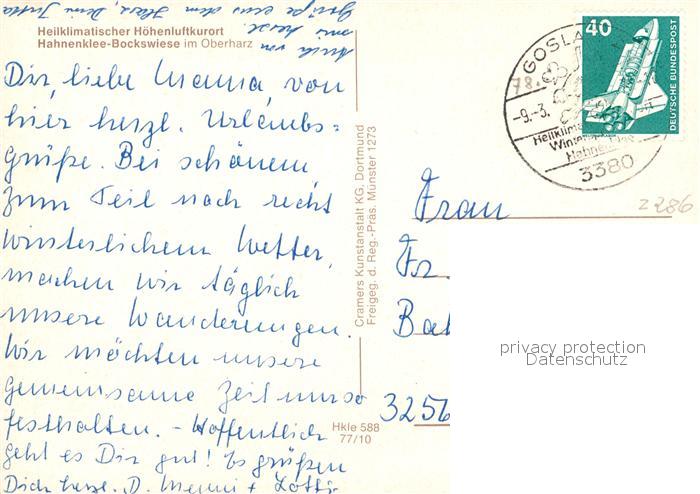 Heilklimatischer Höhenluftkurort
Hahnenklee-Bockswiese im Oberharz
Dir, liebe Mama, von
hier herzl. Urlaubs-
grüße. Bei schönem
zum Teil noch recht
winterlichem Wetter,
machen wir täglich
unsere Wanderungen.
Wir möchten unsere
gemeinsame Zeit nur so
festhalten. - Hoffentlich
geht es Dir gut! Es grüßen
Dich herzl. D. + Lotti
Auch von
mir herzl.
Grüße aus dem Harz, Deine Jutta
Cramers Kunstanstalt KG, Dortmund
Freigeg. d. Reg.-Präs. Münster 1273
Hkle 588
77/10
40
DEUTSCHE BUNDESPOST
GOSLA
-9.-3.
78.
Heilklim
Win
Hahne
3380
z 286
Frau
Fr
Ba
3256
privacy protection
Datenschutz